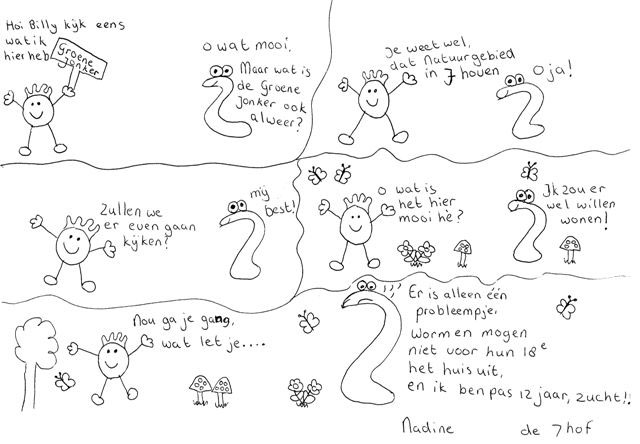 Hoi Billy kijk eens
wat ik
hier heb
Groene
Jonker
O wat mooi,
Maar wat is
de Groene
Jonker ook
alweer?
Je weet wel,
dat Natuurgebied
in 7hoven
O ja!
Zullen we
er even gaan
kijken?
mij
best!
O wat is
het hier
mooi hè?
Ik zou er
wel willen
wonen!
Nou ga je gang,
wat let je....
Er is alleen één
probleempje.
Wormen mogen
niet voor hun 18e
het huis uit,
en ik ben pas 12 jaar, zucht!!
Nadine de 7hof